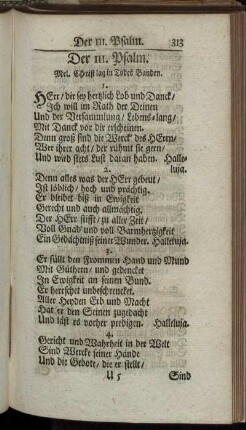 Der III. Psalm. 313
Der III. Psalm.
Mel. Christ lag in Todes Banden.
1.
HErr / dir sey hertzlich Lob und Danck /
Ich will im Rath der Deinen
Und der Versammlung / Lebens-lang /
Mit Danck vor dir erscheinen.
Denn groß sind die Werck' des HErrn /
Wer ihrer acht / der rühmt sie gern /
Und wird stets Lust daran haben. Halle-
luja.
2.
Denn alles was der HErr gebeut /
Ist löblich / hoch und prächtig.
Er bleibet biß in Ewigkeit
Gerecht und auch allmächtig.
Der HErr stifft / zu aller Zeit /
Voll Gnad' und voll Barmhertzigkeit
Ein Gedächtniß seiner Wunder. Halleluja.
3.
Er füllt den Frommen Hand und Mund
Mit Güthern / und gedencket
In Ewigkeit an seinen Bund.
Er herrschet unbeschrencket.
Aller Heyden Erb und Macht
Hat er den Seinen zugedacht
Und läst es vorher predigen. Halleluja.
4.
Gericht und Wahrheit in der Welt
Sind Wercke seiner Hände
Und die Gebote / die er stellt /
U 5 Sind